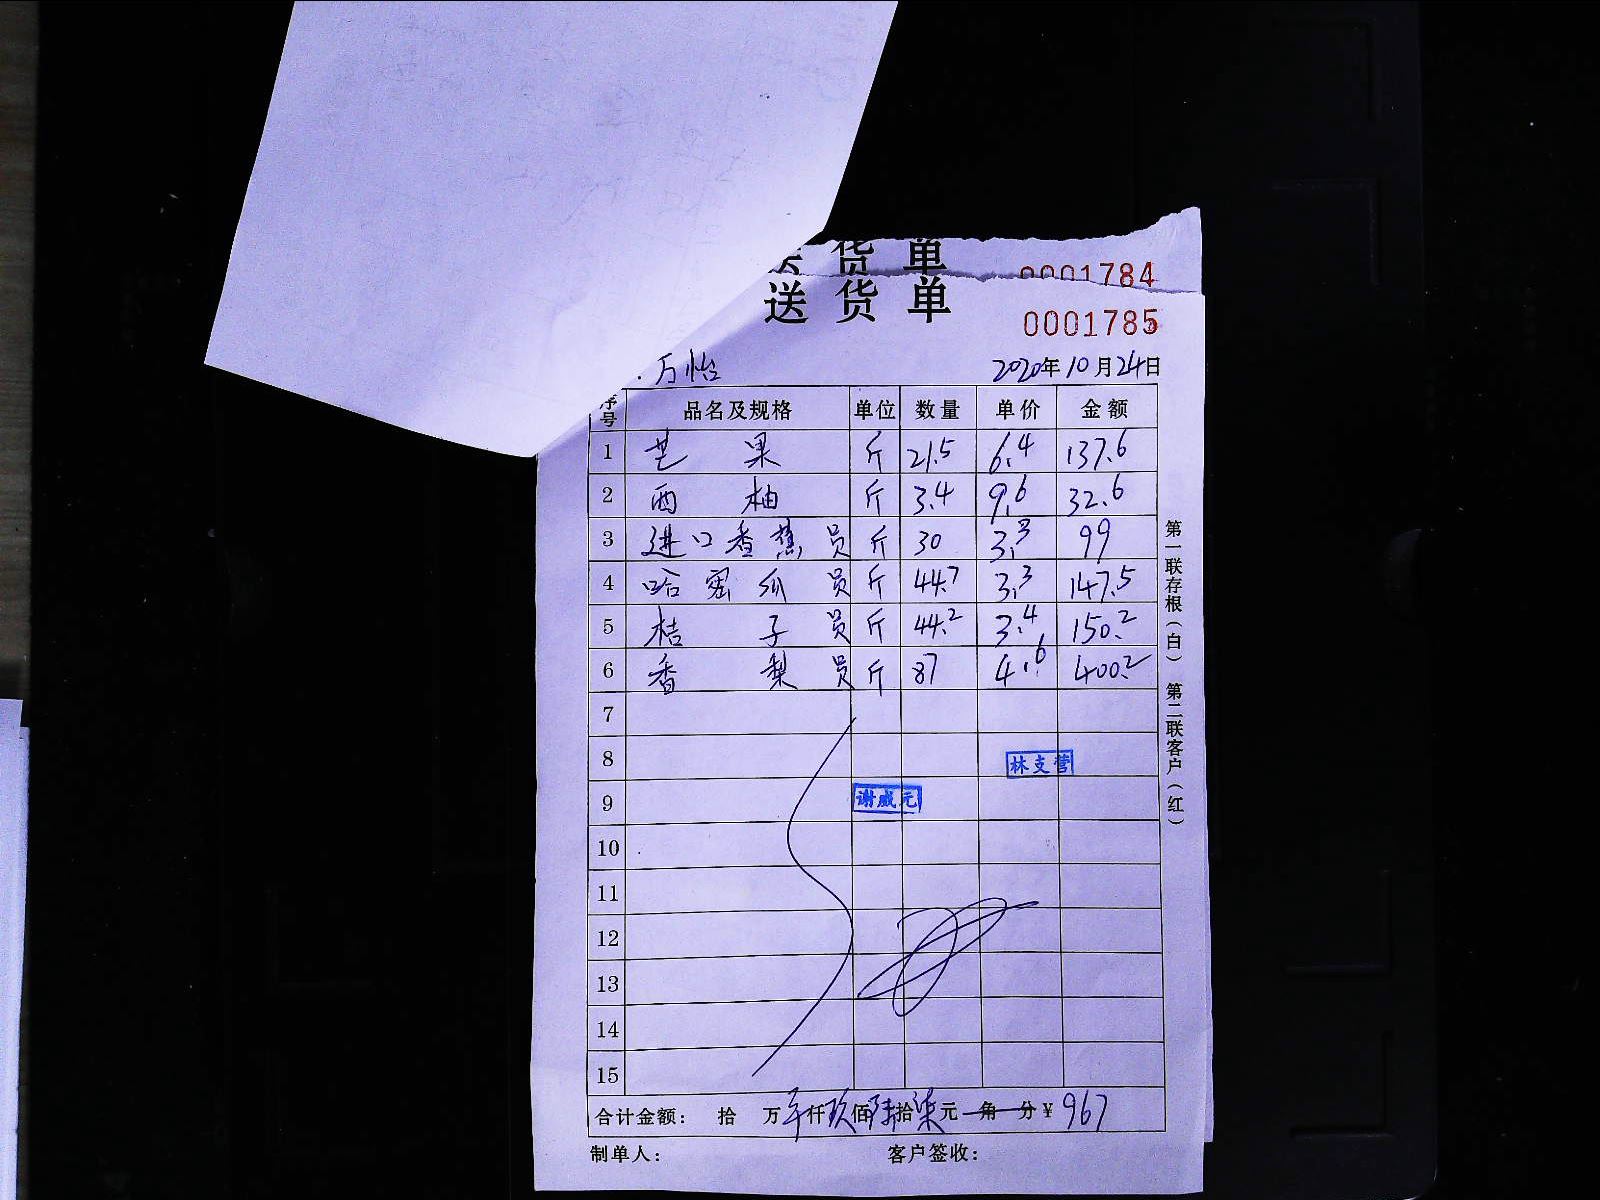 货 单
0001784
送 货 单
0001785
万怡 2020年10月24日
序号 品名及规格 单位 数量 单价 金额
1 芒果 斤 21.5 6.4 137.6
2 西柚 斤 3.4 9.6 32.6
3 进口香蕉 员 斤 30 3.3 99
4 哈密瓜 员 斤 44.7 3.3 147.5
5 桔子 员 斤 44.2 3.4 150.2
6 香梨 员 斤 87 4.6 400.2
7
8 林支营
9 谢威元
10
11
12
13
14
15
合计金额： 拾 万 仟玖佰陆拾柒元 角 分¥ 967
制单人： 客户签收：
第一联存根（白） 第二联客户（红）